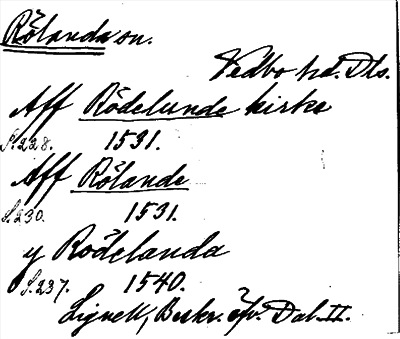 Rölanda sn.
Vedbo hd. Dls.
Aff Rödelunde kirke
S. 228. 1531.
Aff Rölande
S. 230. 1531.
y Rödelanda
S. 237. 1540.
Lignell, Beskr. öfv. Dal. II.